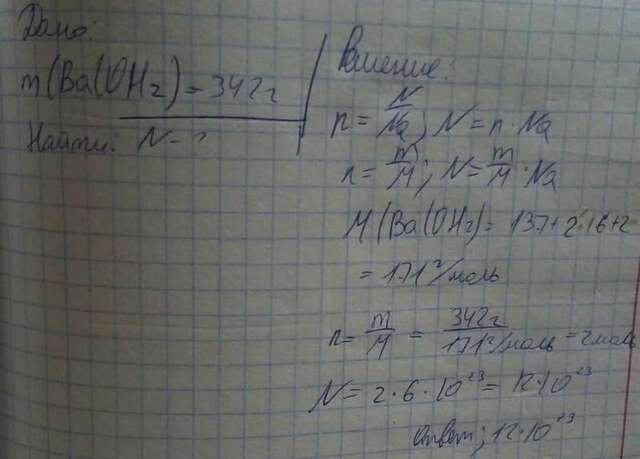 Дано:
m(Ba(OH2) = 342г
Найти: N - ?
Решение:
n = N/Na; N = n · Na
n = m/M; N = m/M · Na
M(Ba(OH2) = 137+2·16+2
= 171 г/моль
n = m/M = 342г/171г/моль = 2моль
N = 2·6·10²³ = 12·10²³
Ответ; 12·10²³